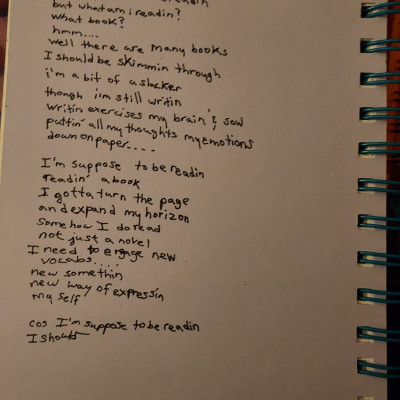 readin
but what am i readin?
What book?
hmm....
well there are many books
I should be skimmin through
i'm a bit of a slacker
though i'm still writin
writin exercises my brain & soul
puttin' all my thoughts my emotions
down on paper....
I'm suppose to be readin
readin' a book
I gotta turn the page
and expand my horizon
somehow I do read
not just a novel
I need to engage new
vocabs....
new somethin
new way of expressin
my self
cos I'm suppose to be readin
I should